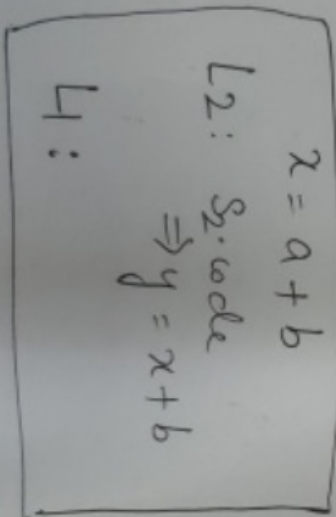 x = a + b
L2: S₂.code
⇒ y = x + b
L1: